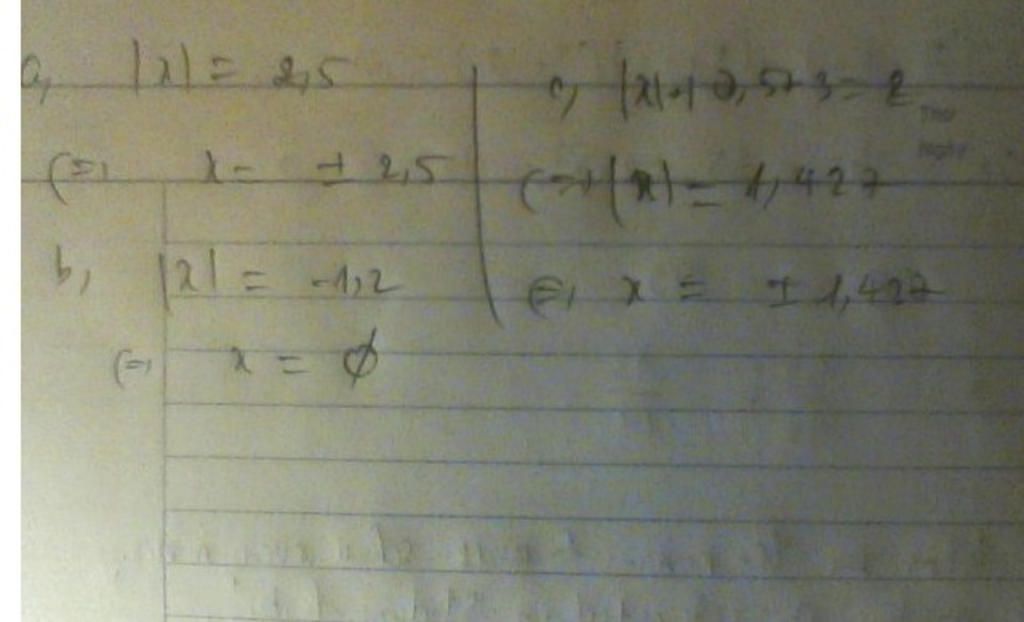 a, |x| = 2,5
(=) x = ± 2,5
b, |x| = -1,2
(=) x = ∅
c, |x| + 0,573 = 2
(=) |x| = 1,427
(=) x = ± 1,427